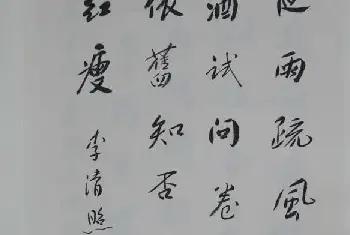 雨疏風
酒試問卷
依舊知否
紅瘦
李清照